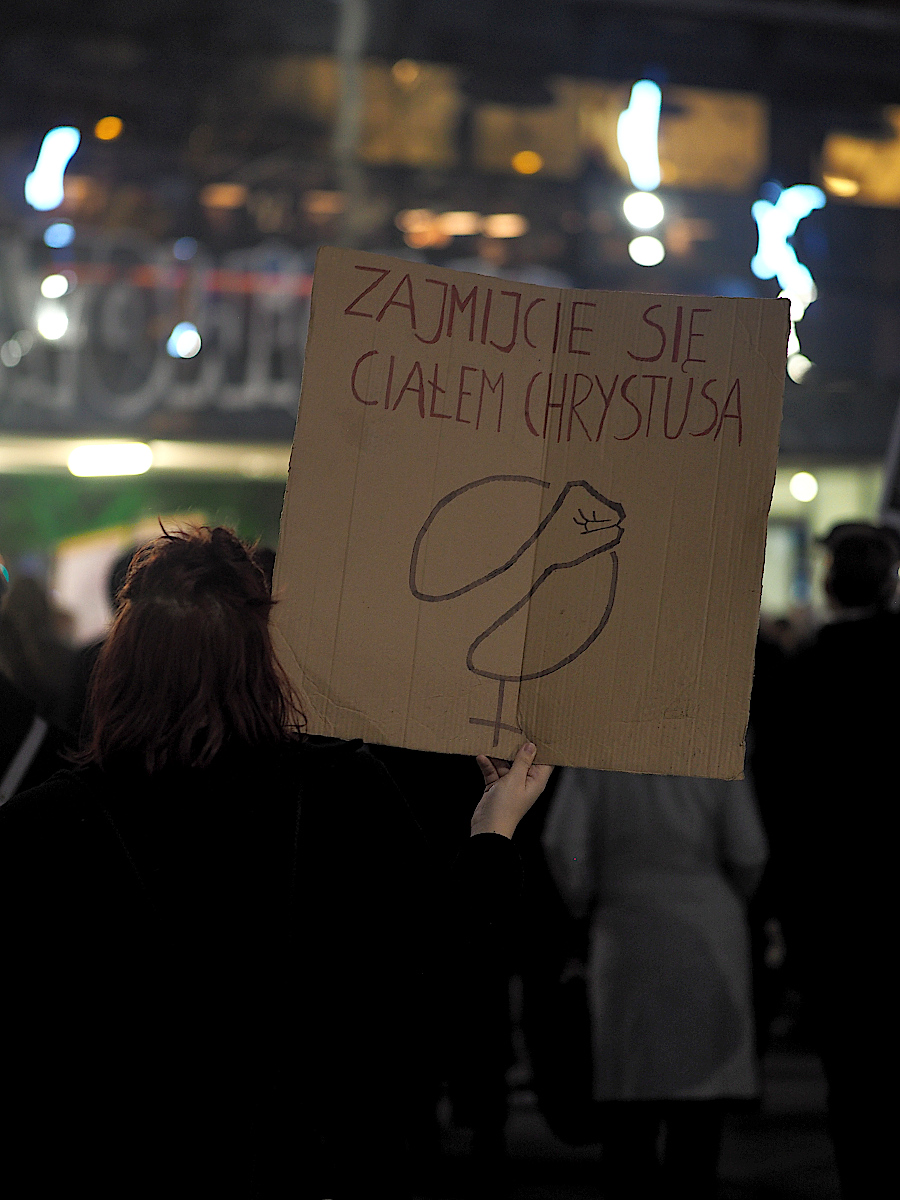 ZAJMIJCIE SIĘ
CIAŁEM CHRYSTUSA